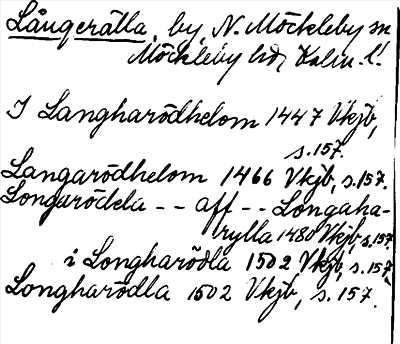 Långerälla, by, N. Möckleby sn
Möckleby hd, Kalm. l.
I Langharödhelom 1447 Vkjb,
s. 157.
Langarödhelom 1466 Vkjb, s. 157.
Longarödela -- aff -- Longaha-
rylla 1480 Vkjb, s. 157
i Longharödla 1502 Vkjb, s. 157
Longharödla 1502 Vkjb, s. 157.